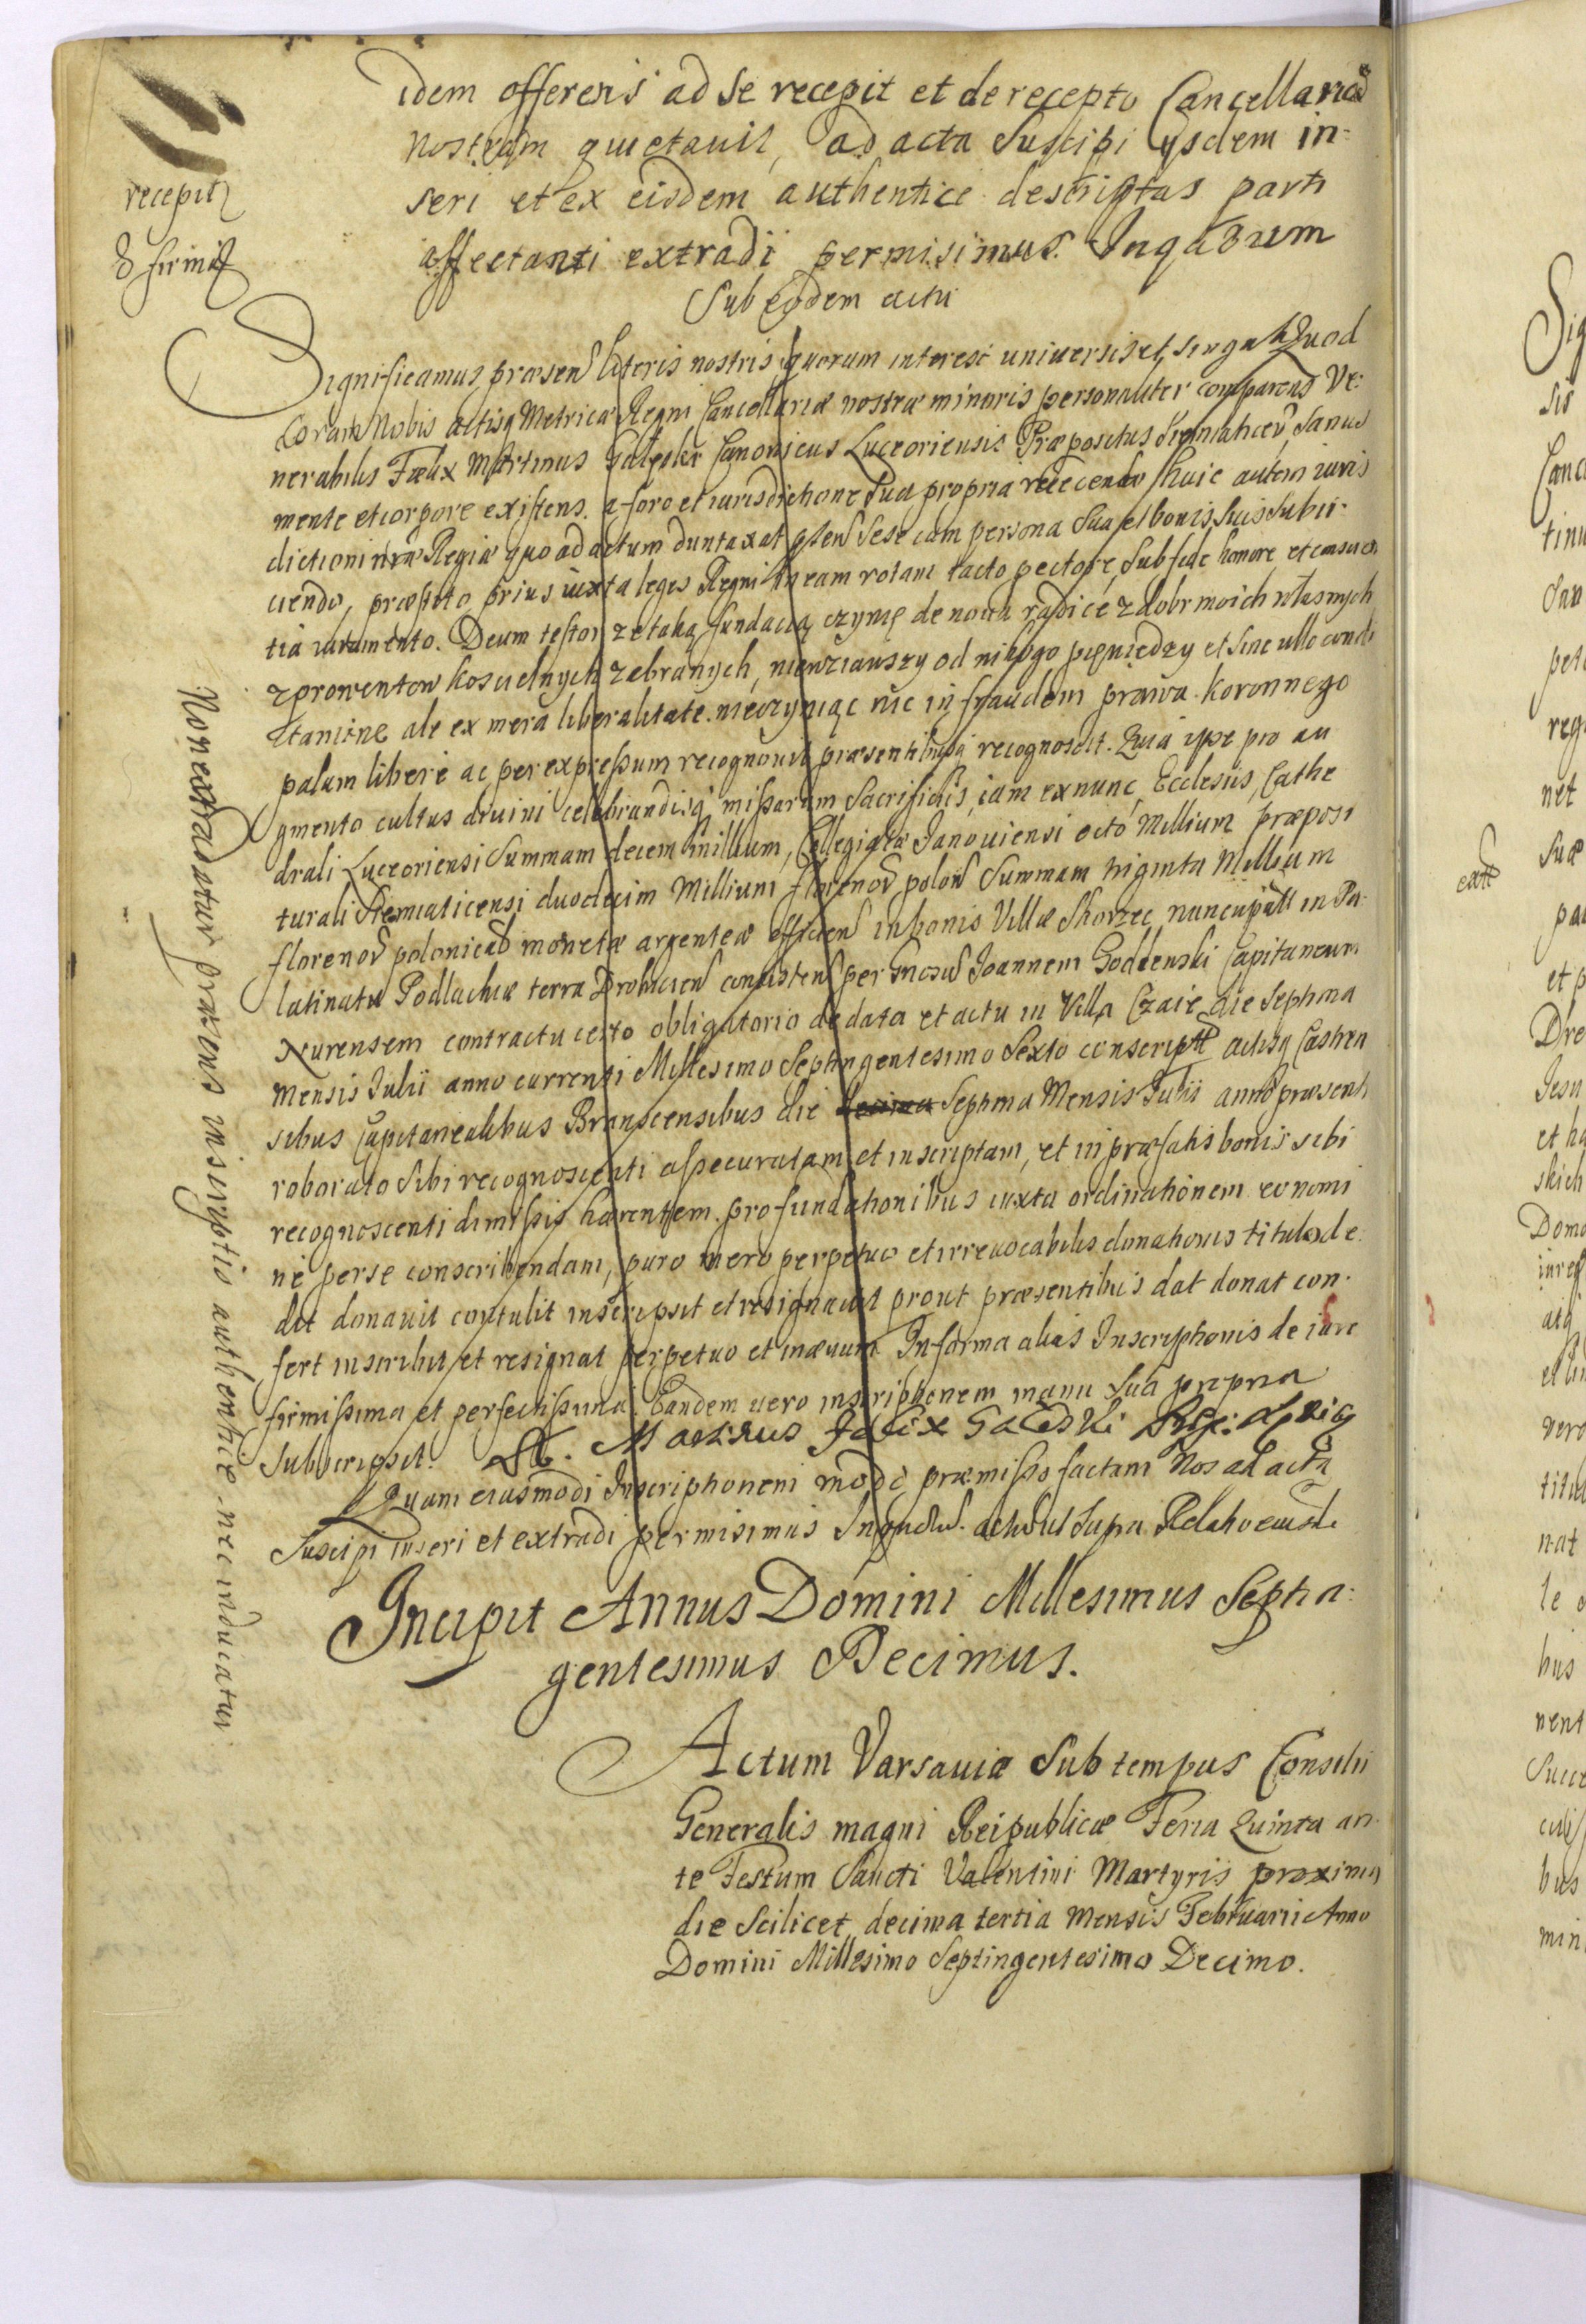 idem offerens ad se recepit et de recepto Cancellariã
nostram quietavit, ad acta suscipi ysdem in-
seri et ex eisdem authentice descriptas parti
affectanti extradi permisimus. In qũ rum
Sub eodem actu
recepit
Significamus præsen̄ literis nostris quorum interest universis et singulis Quod
Coram Nobis actisq Metricæ Regni Cancellariæ nostræ minoris personaliter comparens Ve-
nerabilis Fælix Martinus Canonicus Luceoriensis Præpositus Siemiaticen̄ Sanus
mente et corpore existens. a foro et iurisdictione sua propria recedendo huic autem iuris
dictioni nr̄æ Regiæ quo ad actum duntaxat præsen̄ sese cum persona sua et bonis suis subii-
ciendo, præstito prius iuxta leges Regni in eam rotam tacto pectore, sub fide honore et conscien
tia iuramento. Deum testor ze taką fundacią czynię de nova radice z dobr moich własnych
z prowentow koscielnych zebranych, niewziąwszy od nikogo pięniędzy et sine ullo condi
ctamine ale ex mera liberalitate. nieczyniąc nic in fraudem prawa koronnego
palam libere ac per expressum recognovit præsentibusq recognoscit. Quia ipse pro au
gmento cultus divini celebrandisq missarum sacrificiis, iam ex nunc Ecclesiis, Cathe
drali Luceoriensi Summam decem millium, Collegiatæ Janoviensi octo Millium præposi
turali Siemiaticensi duodecim Millium florenor̄ polon̄ Summam triginta Millium
florenor̄ polonical̄ monetæ argenteæ efficien̄ in bonis Villæ Skorzec nuncupat̄ in Pa-
latinatu Podlachiæ terra Drohicien̄ consisten̄ per Gn̄osum Joannem Godlewski Capitaneum
Nurensem contractu certo obligatorio de data et actu in Villa Czaie die Septima
Mensis Julii anno currenti Millesimo Septingentesimo Sexto conscripto actisq Castren
sibus Capitanealibus Branscensibus die decima Septima Mensis Julii anno præsenti
roborato sibi recognoscenti assecuratam et inscriptam, et in præfatis bonis sibi
recognoscenti dimissis hærentem. pro fundationibus iuxta ordinationem eo nomi
ne per se conscribendam, puro mero perpetuo et irrevocabilis donationis titulo de
dit donavit contulit inscripsit et resignavit prout præsentibus dat donat con-
fert inscribit et resignat perpetuo et in ævum In forma alias Inscriptionis de iure
firmissima et perfectissima Eandem vero inscriptionem manu sua propria
subscripsit. Martinus Felix
Quam eiusmodi Inscriptionem modo præmisso factam Nos ad acta
Suscipi inseri et extradi permisimus In quor̄. Actu ut supra Relatio eiusd̄
Non extradatur præsens inscriptio authentice nec inducatur
Incipit Annus Domini Millesimus Septin-
gentesimus Decimus.
Actum Varsaviæ Sub tempus Consilii
Generalis magni Reipublicæ Feria Quinta an-
te Festum Sancti Valentini Martyris proxima
die Scilicet decima tertia Mensis Februarii Anno
Domini Millesimo Septingentesimo Decimo.